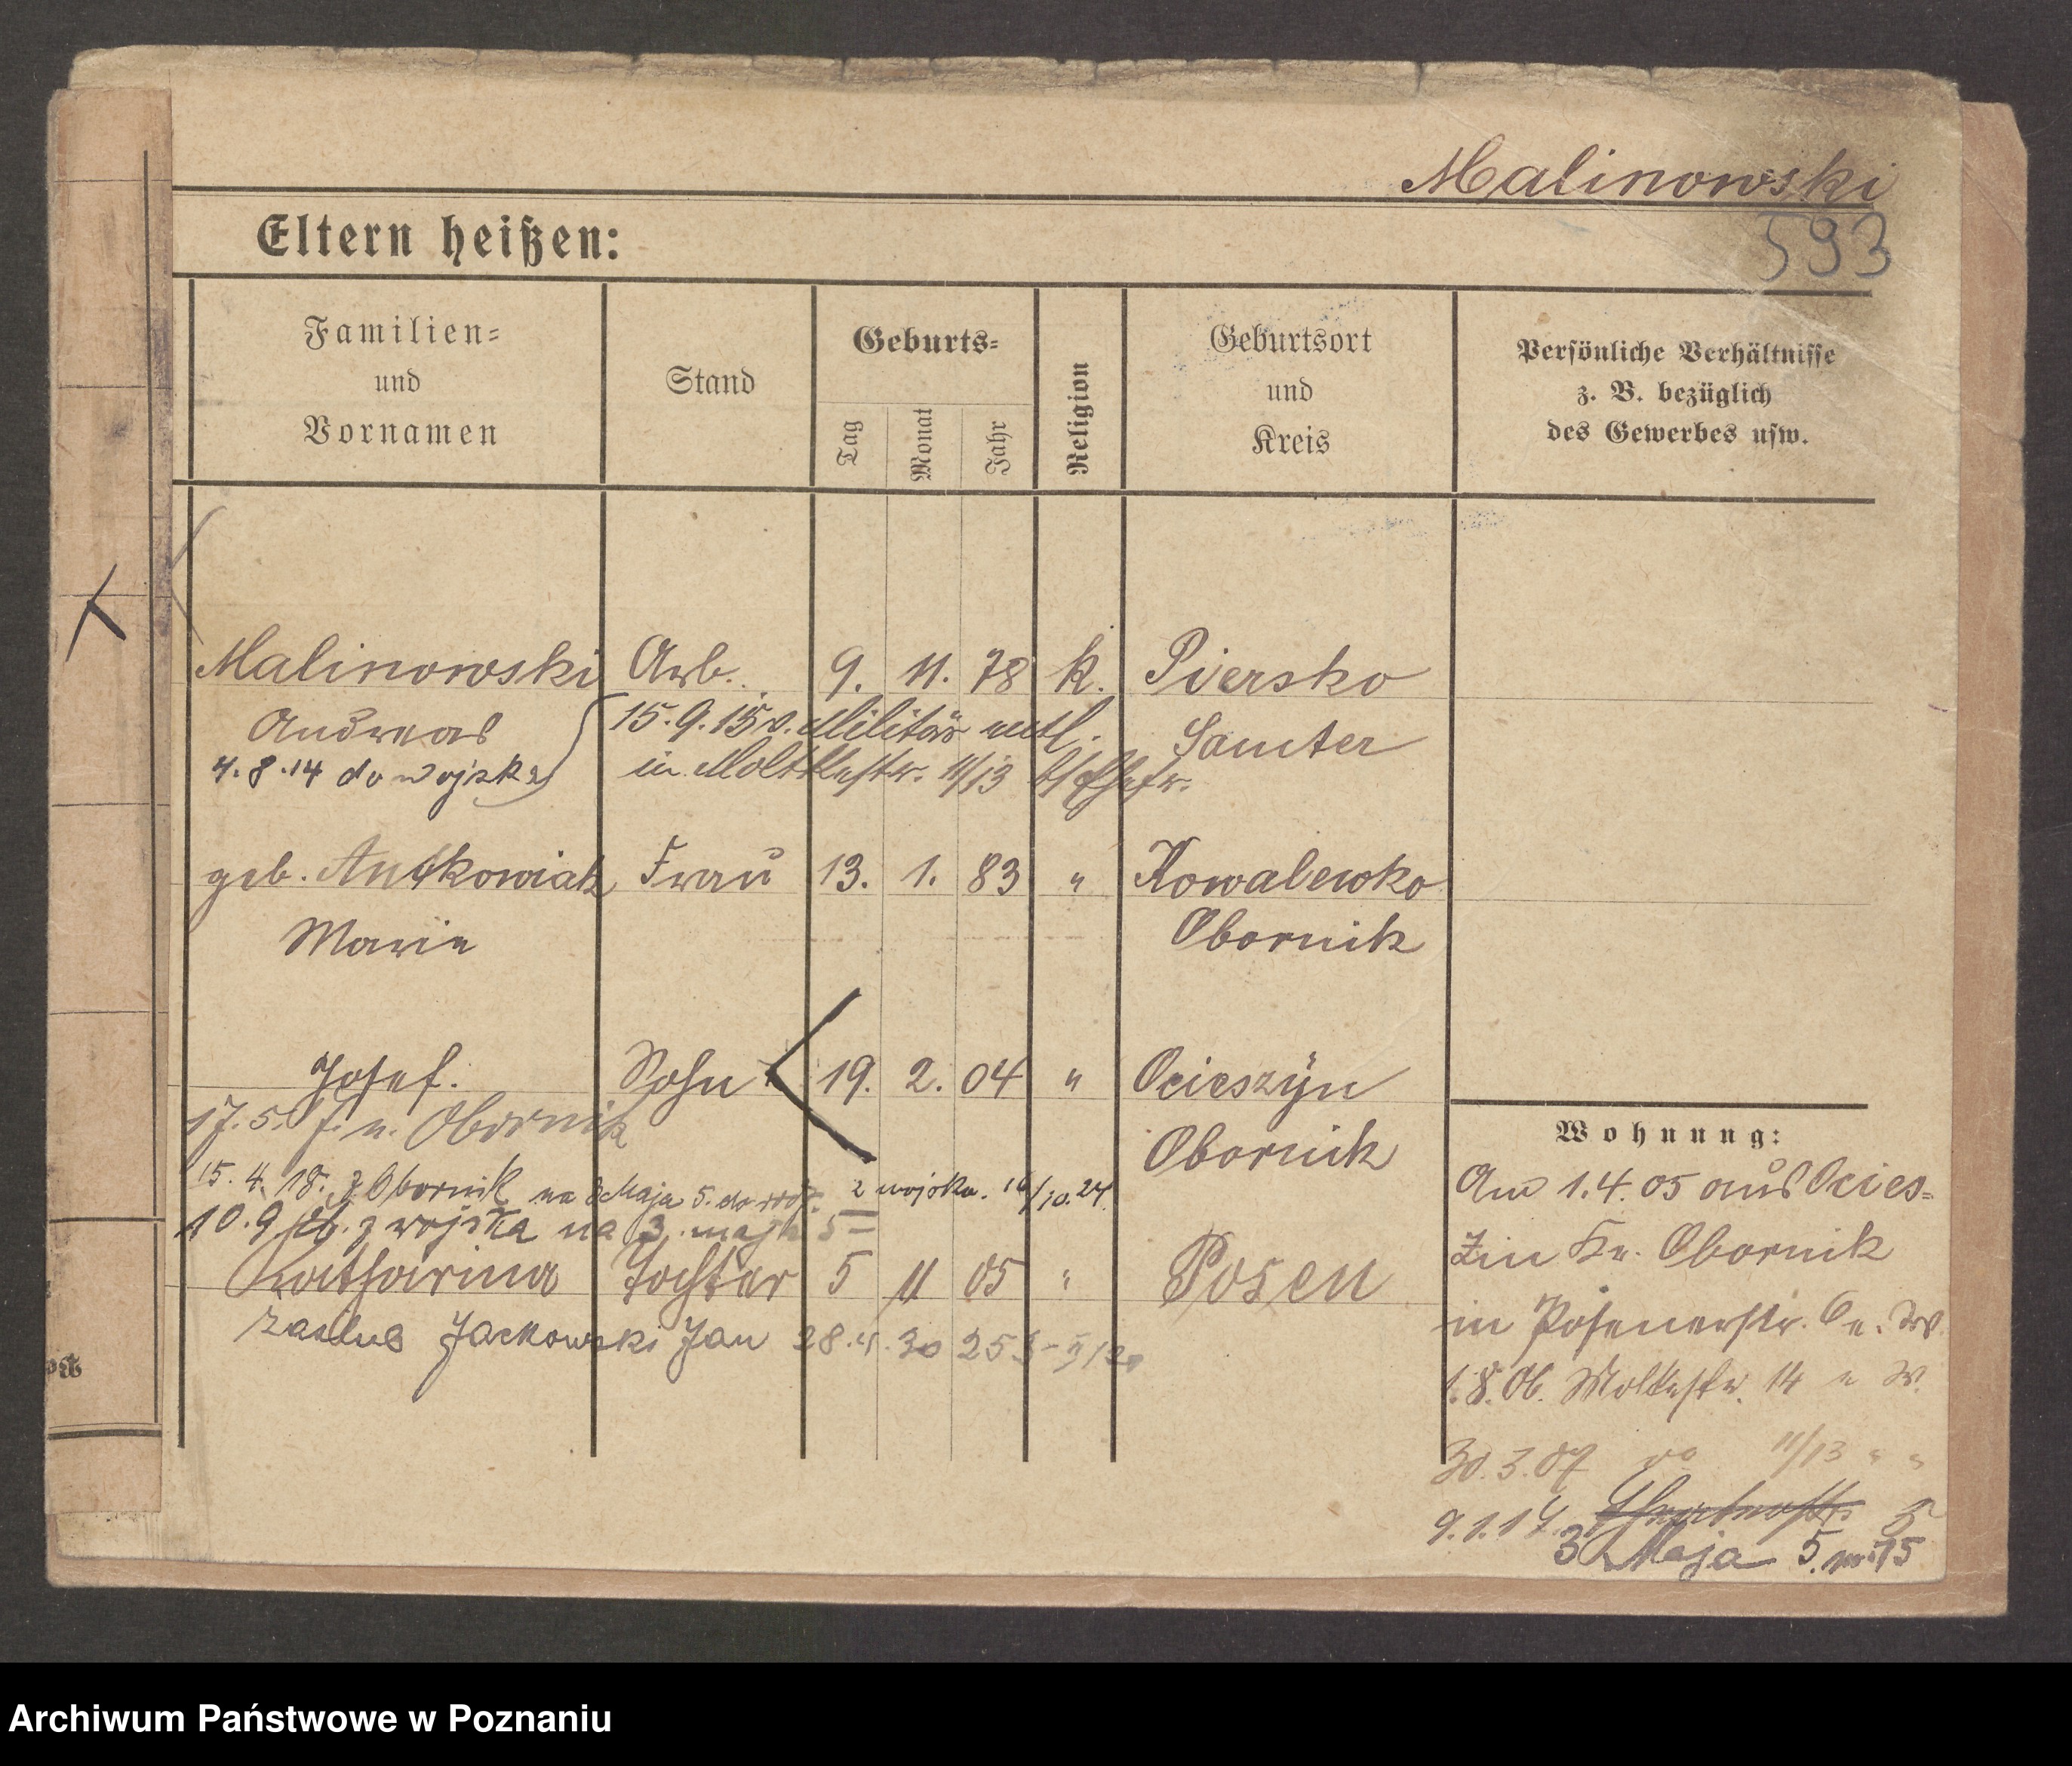 Malinowski
593
Eltern heißen:
Familien=
und
Vornamen
Stand
Geburts=
Tag
Monat
Jahr
Religion
Geburtsort
und
Kreis
Persönliche Verhältnisse
z. B. bezüglich
des Gewerbes usw.
Malinowski Arb. 9. 11. 78 k. Piersko
Andreas 15.9.15 v. Militär entl. Samter
4.8.14 do wojska in Moltkestr. 11/13
geb. Antkowiak Frau 13. 1. 83 " Kowalewko
Marie Obornik
Josef. Sohn 19. 2. 04 " Ocieszyn
17.5. Obornik
Obornik
15.4.18. z Obornik na 3 Maja 5. do z wojska. 16/10.24
10.9 z wojska na 3. maja 5
Katharina Tochter 5 11 05 " Posen
Jackowski Jan 28.4.30
Wohnung:
Am 1.4.05 aus Ocies=
zin Kr. Obornik
in Posenerstr.
1.8.06. Moltkestr. 14
30.3.07 do 11/13 " "
9.1.14 5
3 Maja 5 m. 15
Archiwum Państwowe w Poznaniu